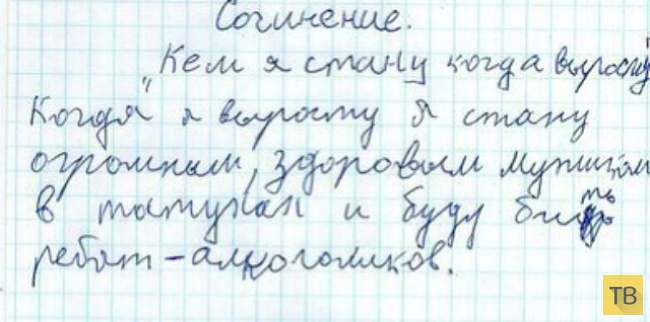 Сочинение.
"Кем я стану когда вырасту"
Когда я вырасту я стану
огромным, здоровым мужиком
в татухах и буду бить
ребят-алкоголиков.
ТВ